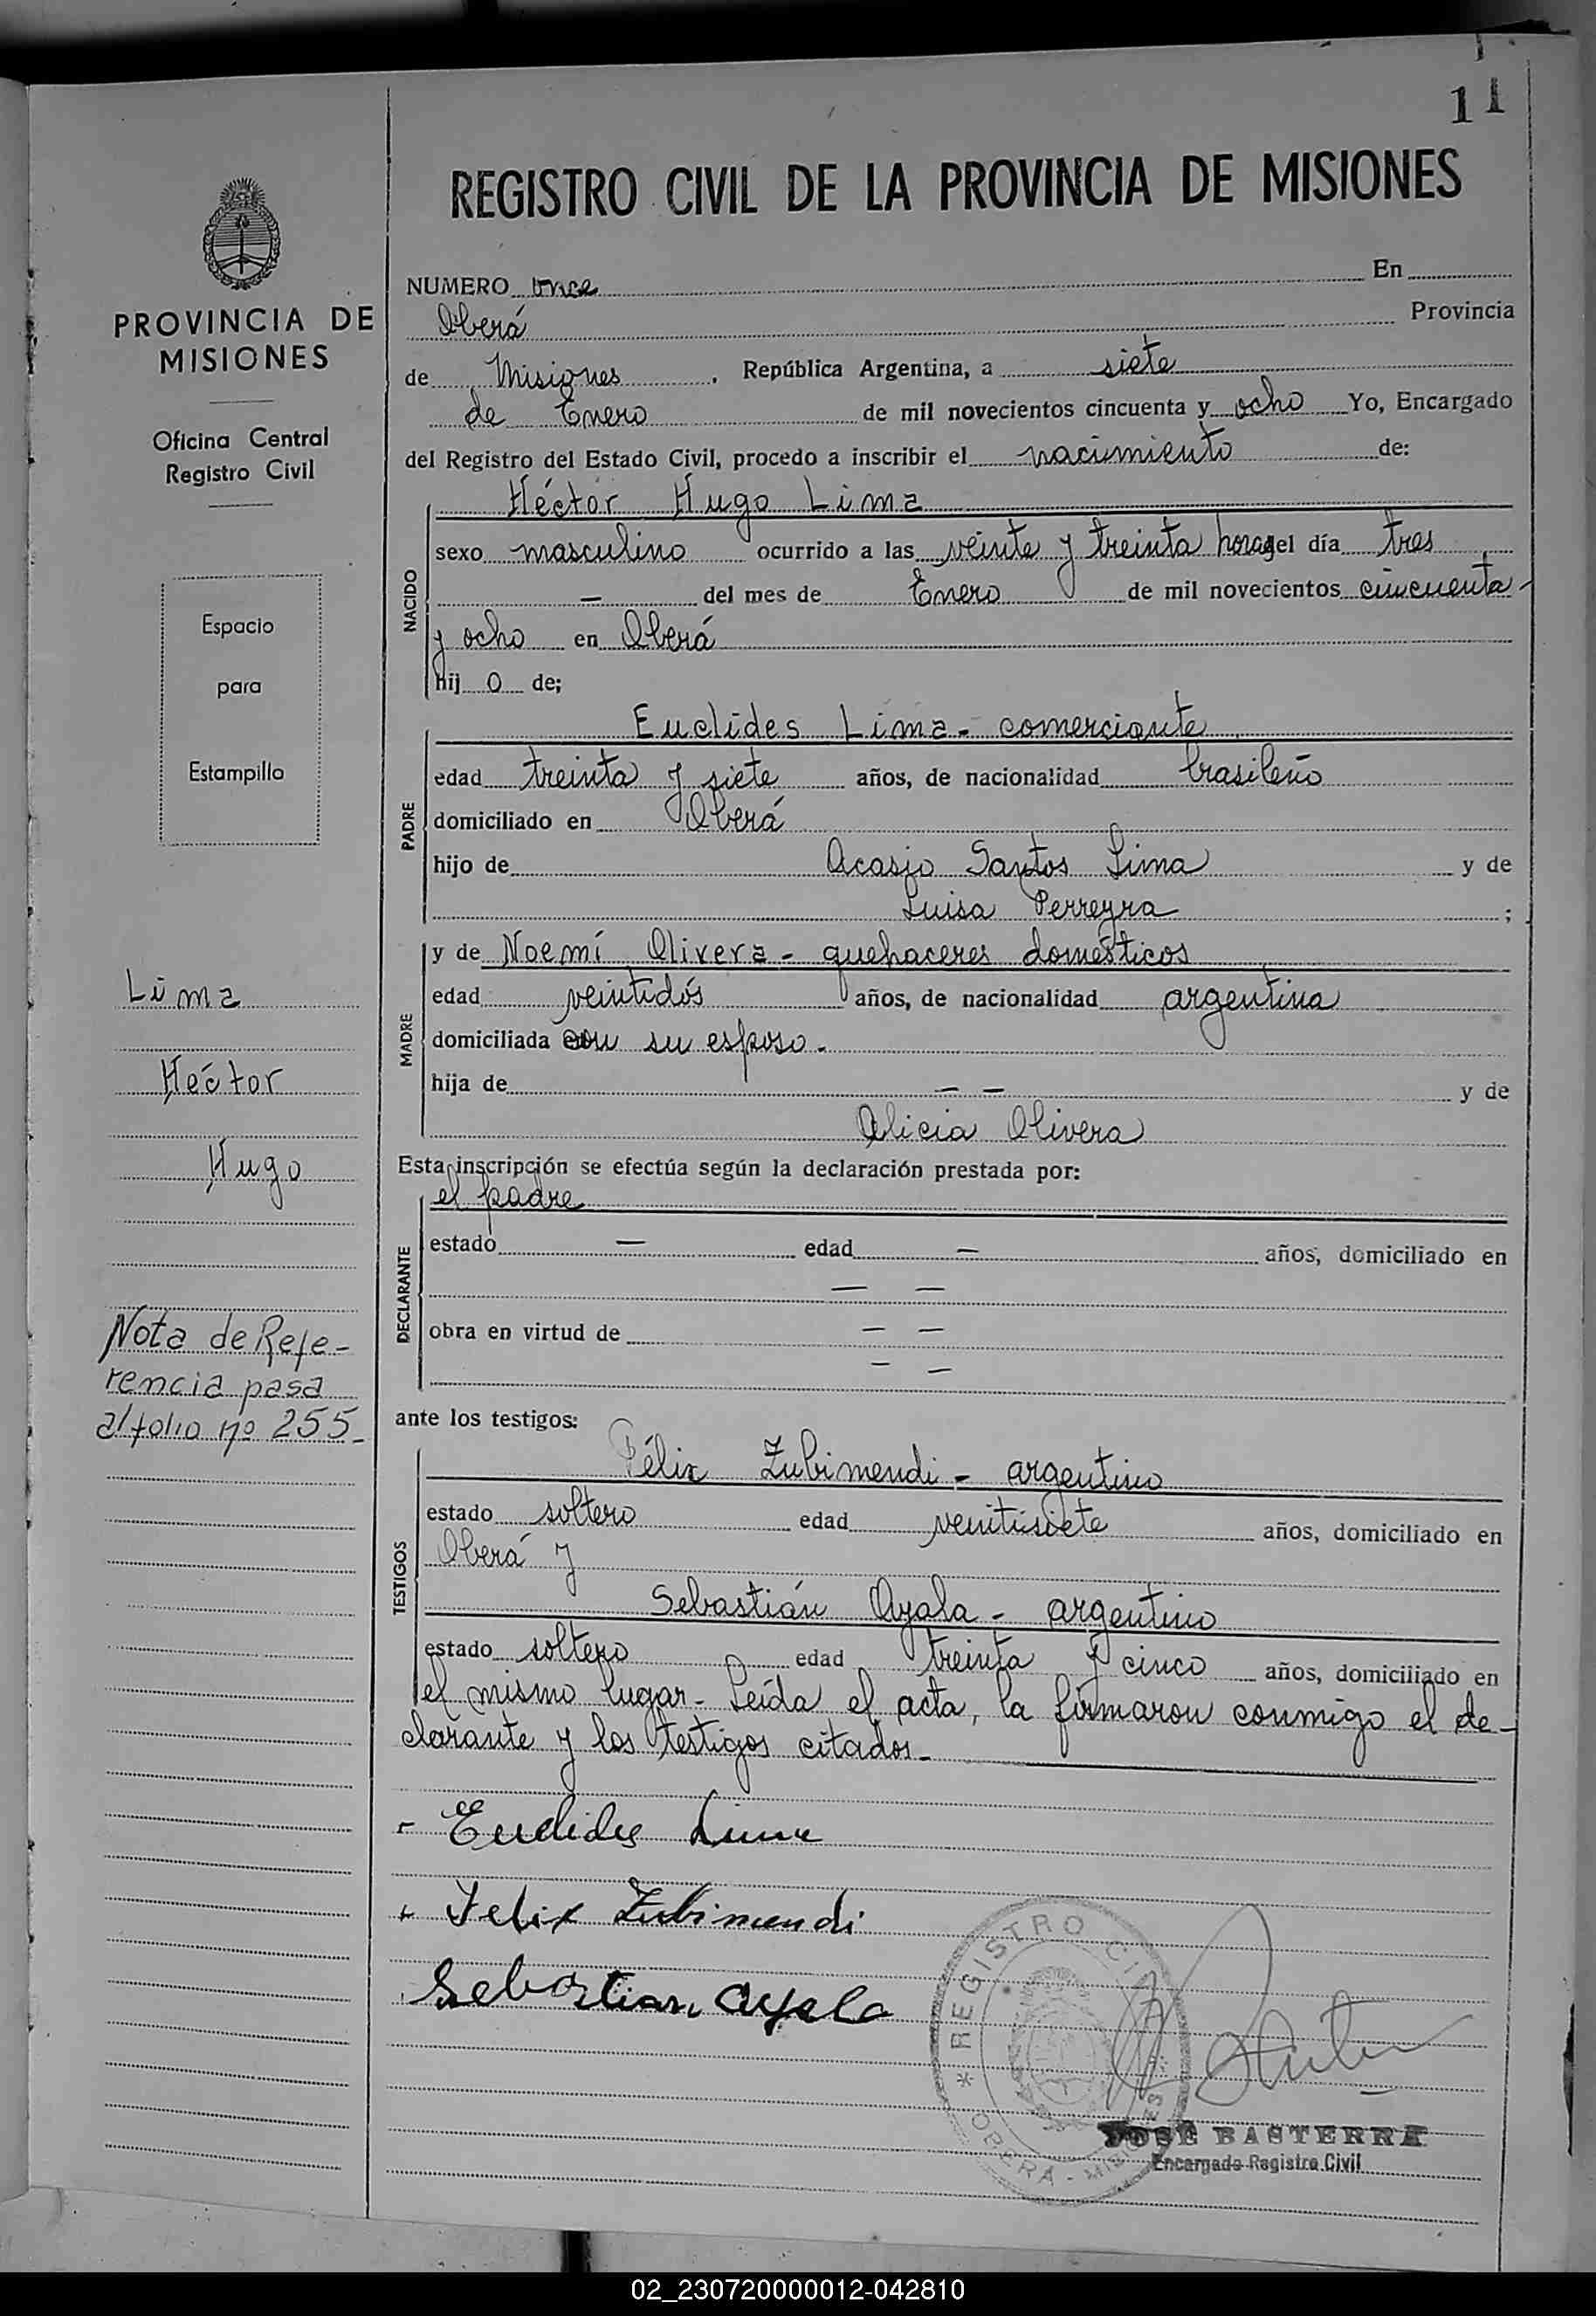 11
REGISTRO CIVIL DE LA PROVINCIA DE MISIONES
PROVINCIA DE
MISIONES
Oficina Central
Registro Civil
Espacio
para
Estampilla
Lima
Héctor
Hugo
Nota de Refe-
rencia pasa
al folio nº 255-
NUMERO once En
Oberá Provincia
de Misiones . República Argentina, a siete
de Enero de mil novecientos cincuenta y ocho Yo, Encargado
del Registro del Estado Civil, procedo a inscribir el nacimiento de:
NACIDO
Héctor Hugo Lima
sexo masculino ocurrido a las veinte y treinta horas del día tres
— del mes de Enero de mil novecientos cincuenta-
y ocho en Oberá
hij o de;
PADRE
Euclides Lima - comerciante
edad treinta y siete años, de nacionalidad brasileño
domiciliado en Oberá
hijo de Acasio Santos Lima y de
Luisa Perreyra ;
MADRE
y de Noemí Olivera - quehaceres domésticos
edad veintidós años, de nacionalidad argentina
domiciliada con su esposo.
hija de — — y de
Alicia Olivera
Esta inscripción se efectúa según la declaración prestada por:
DECLARANTE
el padre
estado — edad — años, domiciliado en
— —
obra en virtud de — —
— —
ante los testigos:
TESTIGOS
Félix Zubimendi - argentino
estado soltero edad veintisiete años, domiciliado en
Oberá y
Sebastián Ayala - argentino
estado soltero edad treinta y cinco años, domiciliado en
el mismo lugar - Leída el acta, la firmaron conmigo el de-
clarante y los testigos citados.-
Euclides Lima
Felix Zubimendi
Sebastian Ayala
* REGISTRO CIVIL *
OBERA - MISIONES
JOSÉ BASTERRA
Encargado Registro Civil
02_230720000012-042810